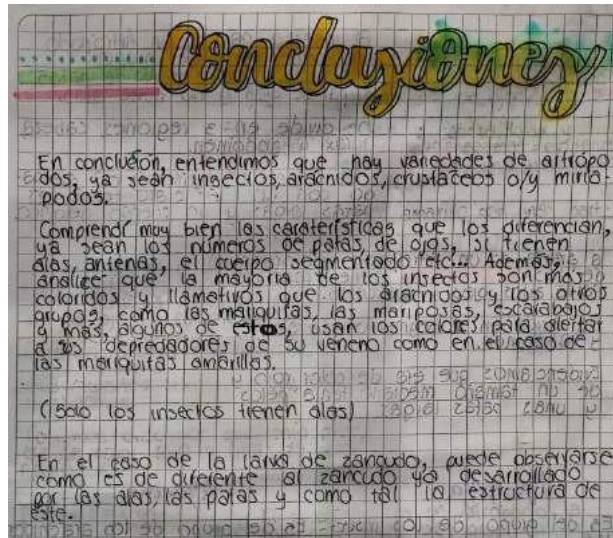 Conclusiones
En conclusión, entendimos que hay variedades de artrópo
dos, ya sean insectos, arácnidos, crustáceos o/y miria-
podos.
Comprendí muy bien las caraterísticas que los diferencian,
ya sean los números de patas, de ojos, si tienen
alas, antenas, el cuerpo segmentado etc... Además,
analicé que la mayoría de los insectos son mas
coloridos y llamativos que los arácnidos y los otros
grupos, como las mariquitas, las mariposas, escarabajos
y mas, algunos de estos, usan los colores para alertar
a sus depredadores de su veneno como en el caso de
las mariquitas amarillas.
(Solo los insectos tienen alas)
En el caso de la larva de zancudo, puede observarse
como es de diferente al zancudo ya desarrollado
por las alas, las patas y como tal la estructura de
este.